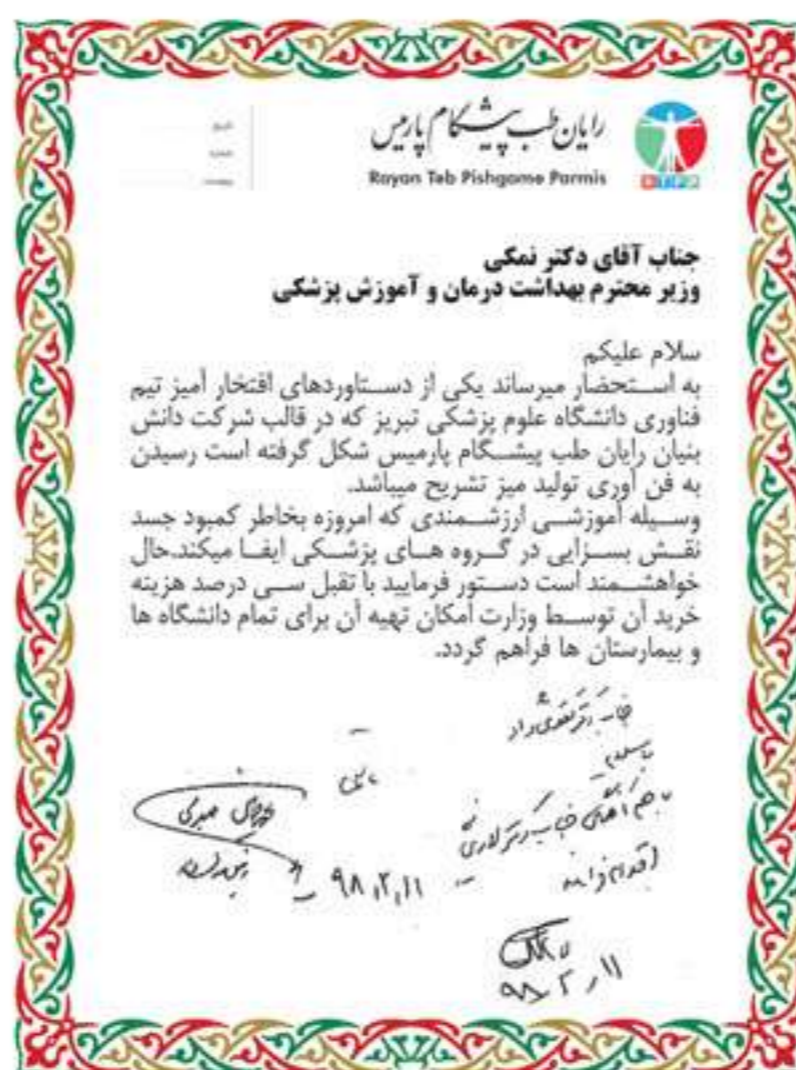 رایان طب پیشگام پارمیس
Rayan Teb Pishgame Parmis
RTPP
جناب آقای دکتر نمکی
وزیر محترم بهداشت درمان و آموزش پزشکی
سلام علیکم
به استحضار میرساند یکی از دستاوردهای افتخار آمیز تیم
فناوری دانشگاه علوم پزشکی تبریز که در قالب شرکت دانش
بنیان رایان طب پیشگام پارمیس شکل گرفته است رسیدن
به فن آوری تولید میز تشریح میباشد.
وسیله آموزشی ارزشمندی که امروزه بخاطر کمبود جسد
نقش بسزایی در گروه های پزشکی ایفا میکند.حال
خواهشمند است دستور فرمایید با تقبل سی درصد هزینه
خرید آن توسط وزارت امکان تهیه آن برای تمام دانشگاه ها
و بیمارستان ها فراهم گردد.
جناب دکتر تقوی نژاد
با سلام
با هماهنگی جناب دکتر لاریجانی
اقدام فرمایید
۹۸٫۲٫۱۱
۹۸٫۲٫۱۱